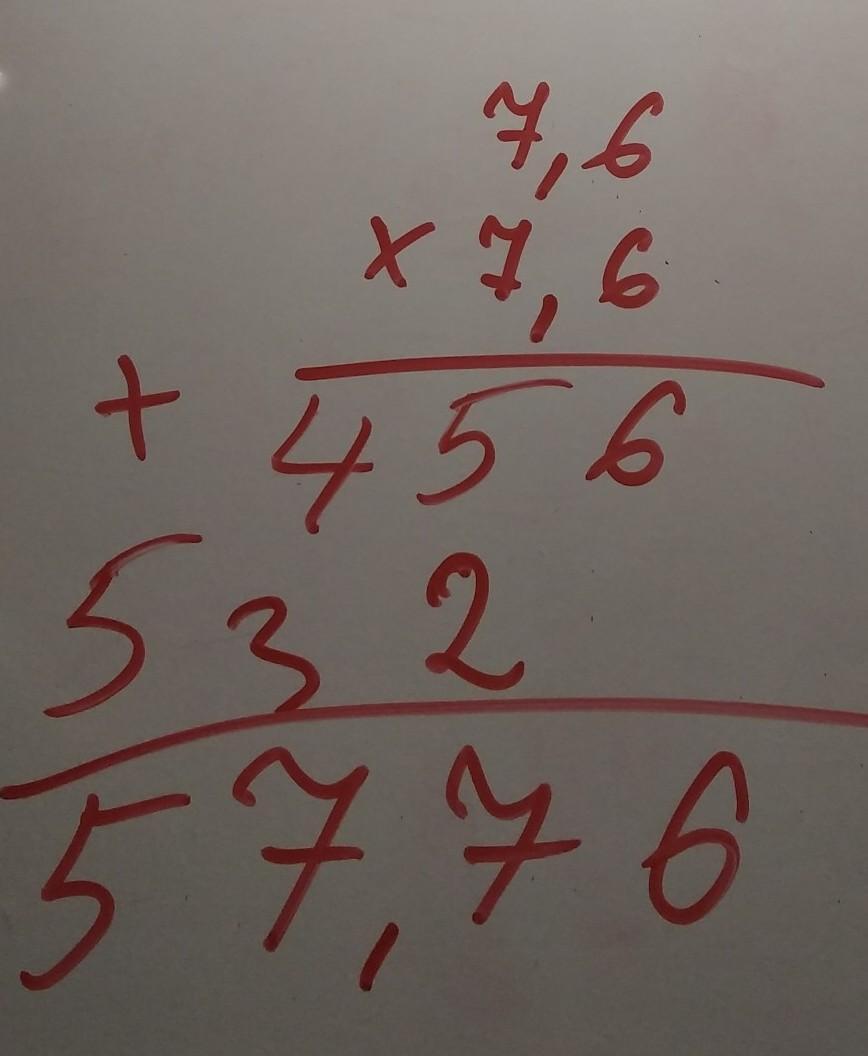 7,6
× 7,6
+ 456
532
57,76